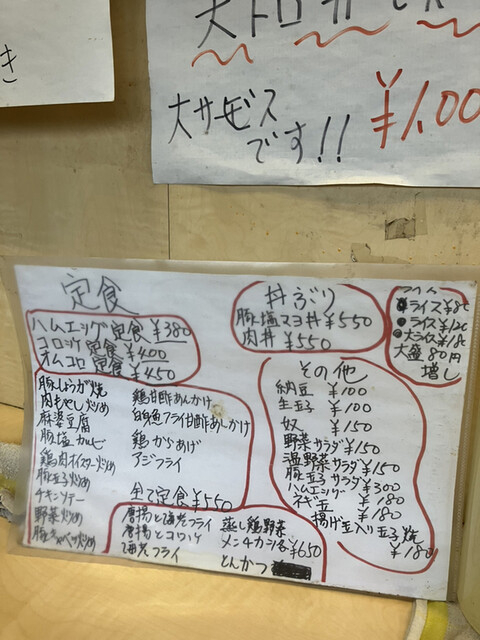 き
大トロ
大サービス
です!! ¥1,00
定食
ハムエッグ定食 ¥380
コロッケ定食 ¥400
オムコロ定食 ¥450
豚しょうが焼
肉もやし炒め
麻婆豆腐
豚塩カルビ
鶏肉オイスター炒め
豚玉子炒め
チキンソテー
野菜炒め
豚キャベツ炒め
鶏甘酢あんかけ
白身魚フライ甘酢あんかけ
鶏からあげ
アジフライ
全て定食¥550
唐揚と海老フライ
唐揚とコロッケ
海老フライ
蒸し鶏野菜
メンチカツ ¥650
とんかつ
丼ぶり
豚塩マヨ丼 ¥550
肉丼 ¥550
ライス¥80
ライス¥120
大ライス¥180
大盛80円
増し
その他
納豆 ¥100
生玉子 ¥100
奴 ¥150
野菜サラダ¥150
温野菜サラダ¥150
豚玉子 ¥300
ハムエッグ ¥180
ネギ玉 ¥180
揚げ玉入り玉子焼
¥180